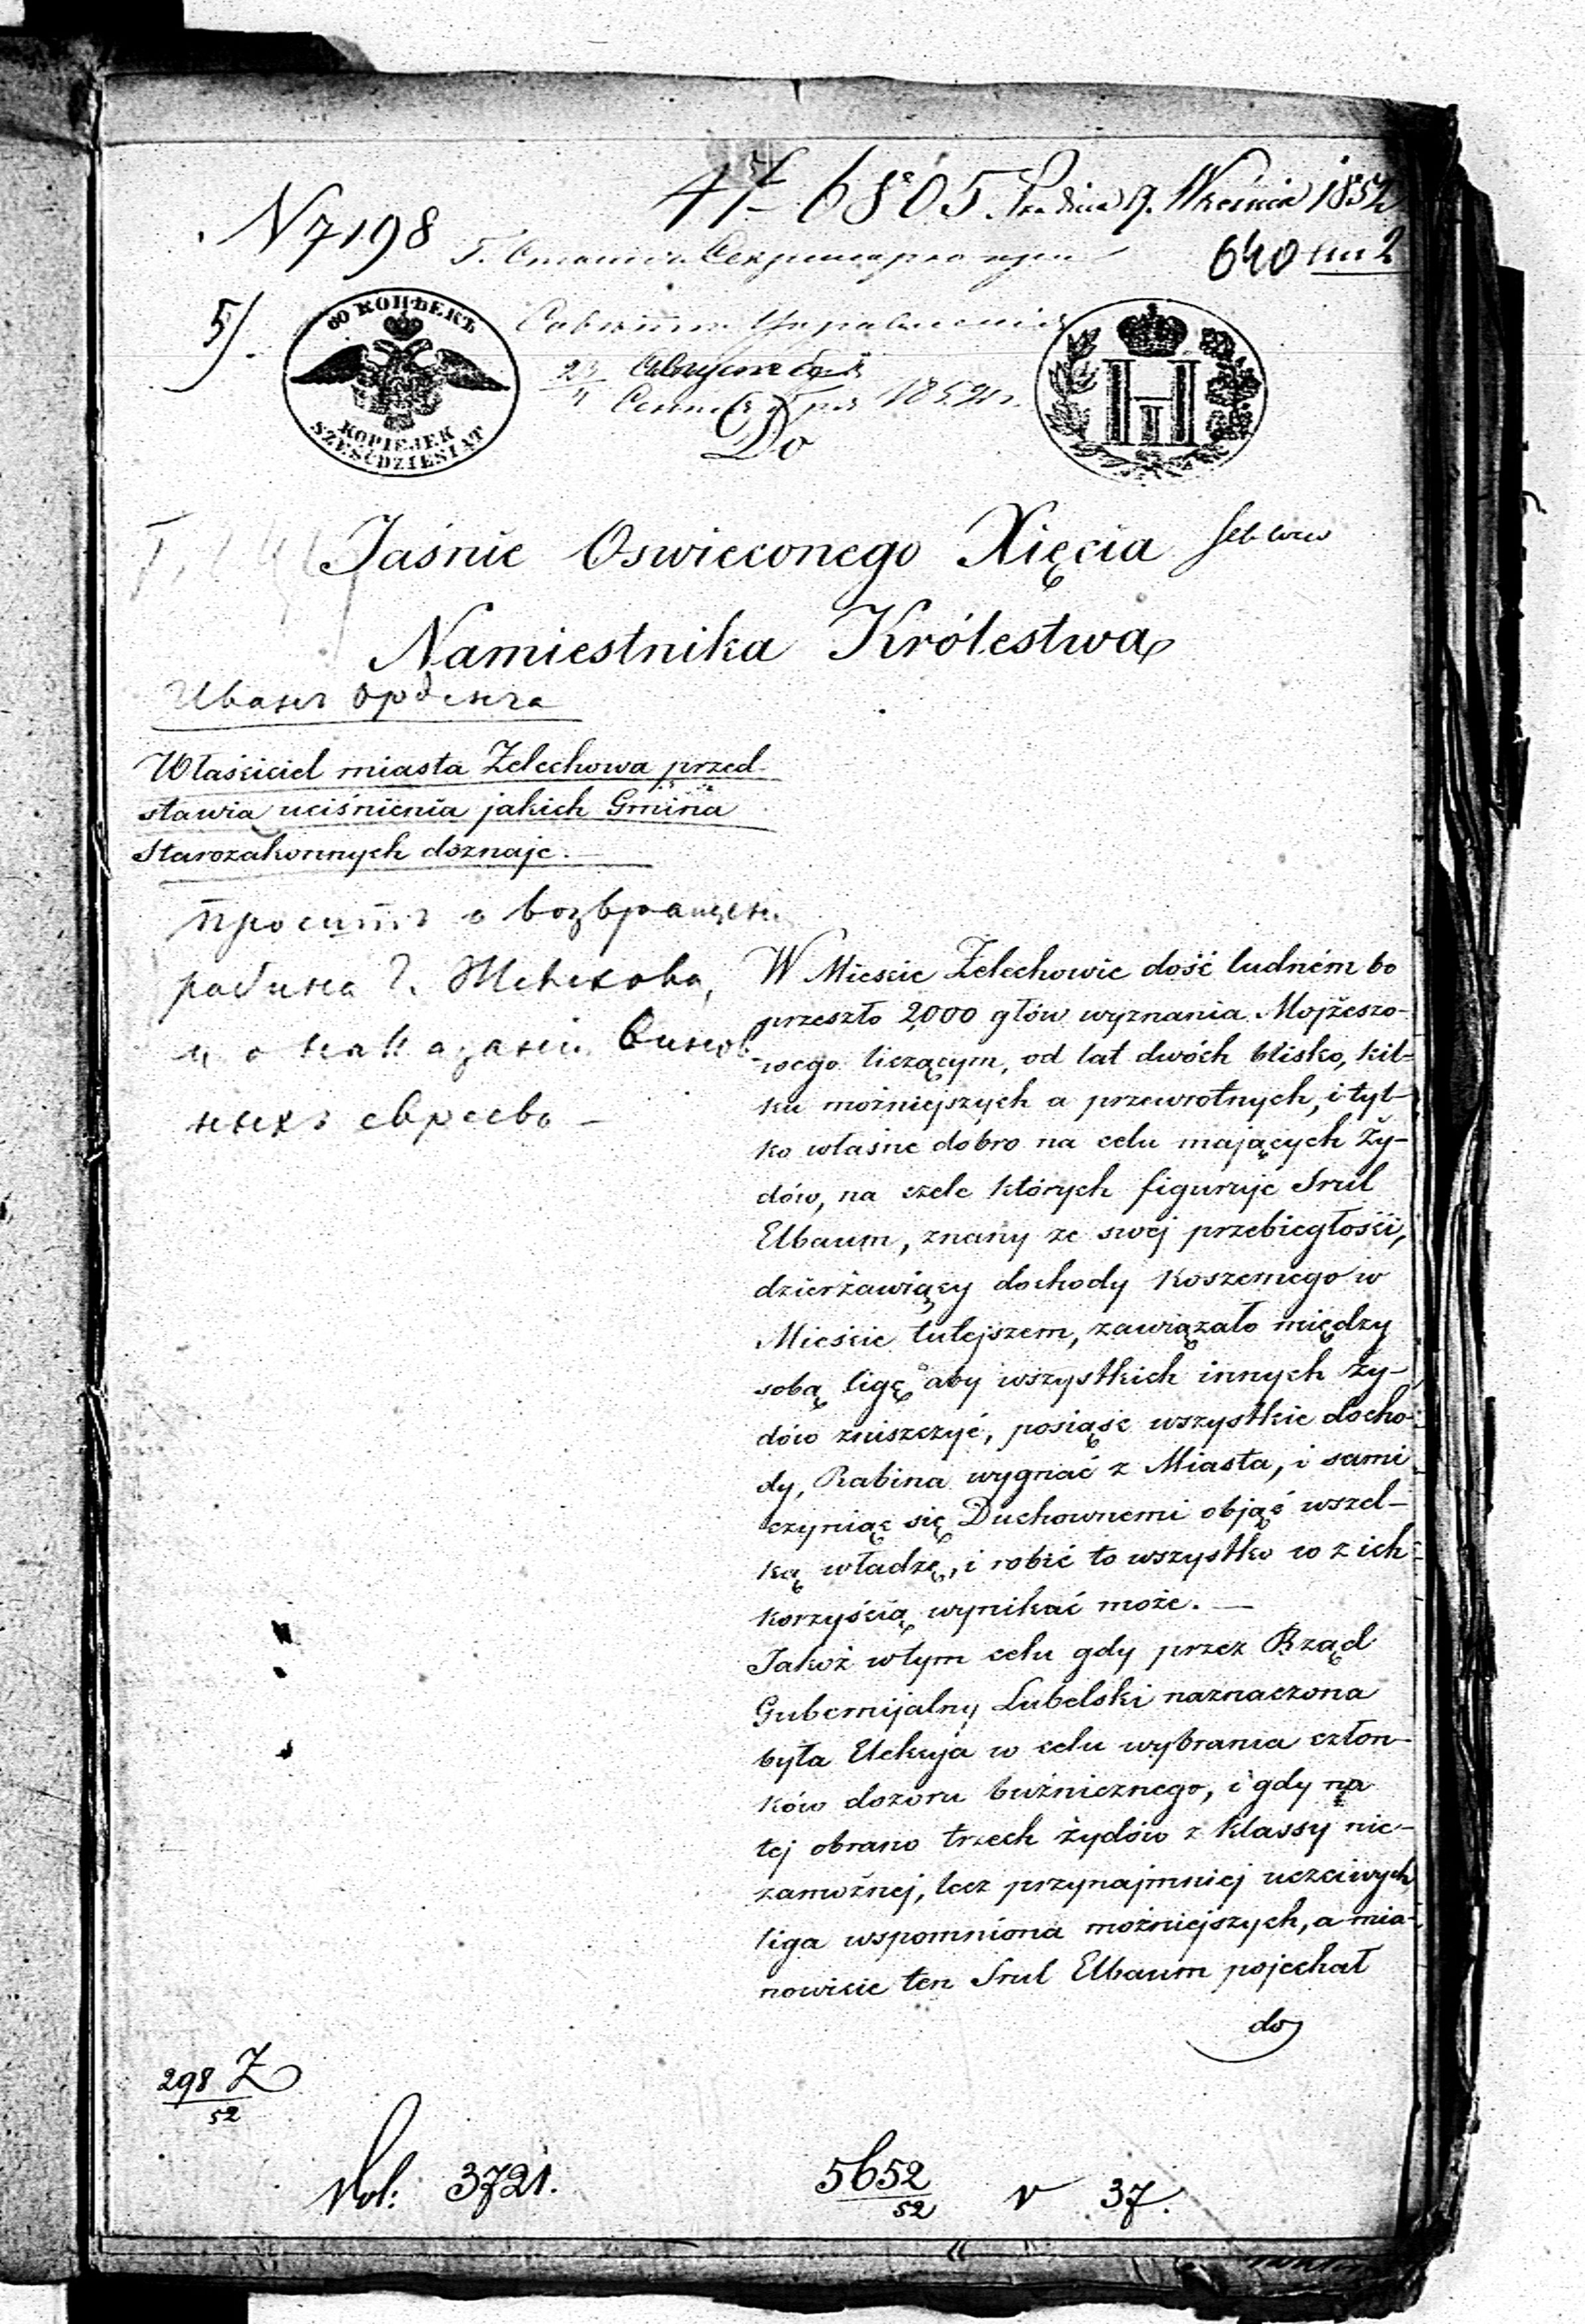 N 7198
6805. Września 1852
640
5/.
60 КОПѢЕКЪ
KOPIEJEK
SZEŚĆDZIESIĄT
Управления
1852 г.
Do
Jaśnie Oswieconego Xięcia
Namiestnika Królestwa
Właściciel miasta Zelechowa przed
stawia uciśnienia jakich Gmina
Starozakonnych doznaje.
просить о возвращени
рабина г. Желехова,
и о наказании винов-
ныхъ евреевъ –
W Mieście Żelechowie dość ludném bo
przeszło 2,000 głów wyznania Mojżeszo-
wego liczącym, od lat dwóch blisko, kil-
ku możniejszych a przewrotnych, i tyl-
ko własne dobro na celu mających Ży-
dów, na czele których figuruje Srul
Elbaum, znany ze swej przebiegłości,
dzierżawiący dochody koszernego w
Mieście tutejszem, zawiązało między
sobą ligę aby wszystkich innych Ży-
dów zniszczyć, posiąść wszystkie docho-
dy, Rabina wygnać z Miasta, i sami
czyniąc się Duchownemi objąć wszel-
ką władzę, i robić to wszystko co z ich
korzyścią wynikać może. —
Jakoż w tym celu gdy przez Rząd
Gubernijalny Lubelski naznaczona
była Elekcyja w celu wybrania człon-
ków dozoru bużnicznego, i gdy na
tej obrano trzech żydów z klassy nie-
zamożnej, lecz przynajmniej uczciwych
liga wspomniona możniejszych, a mia-
nowicie ten Srul Elbaum pojechał
do
298 Z
52
Vol: 3721.
5652
52
v 37.